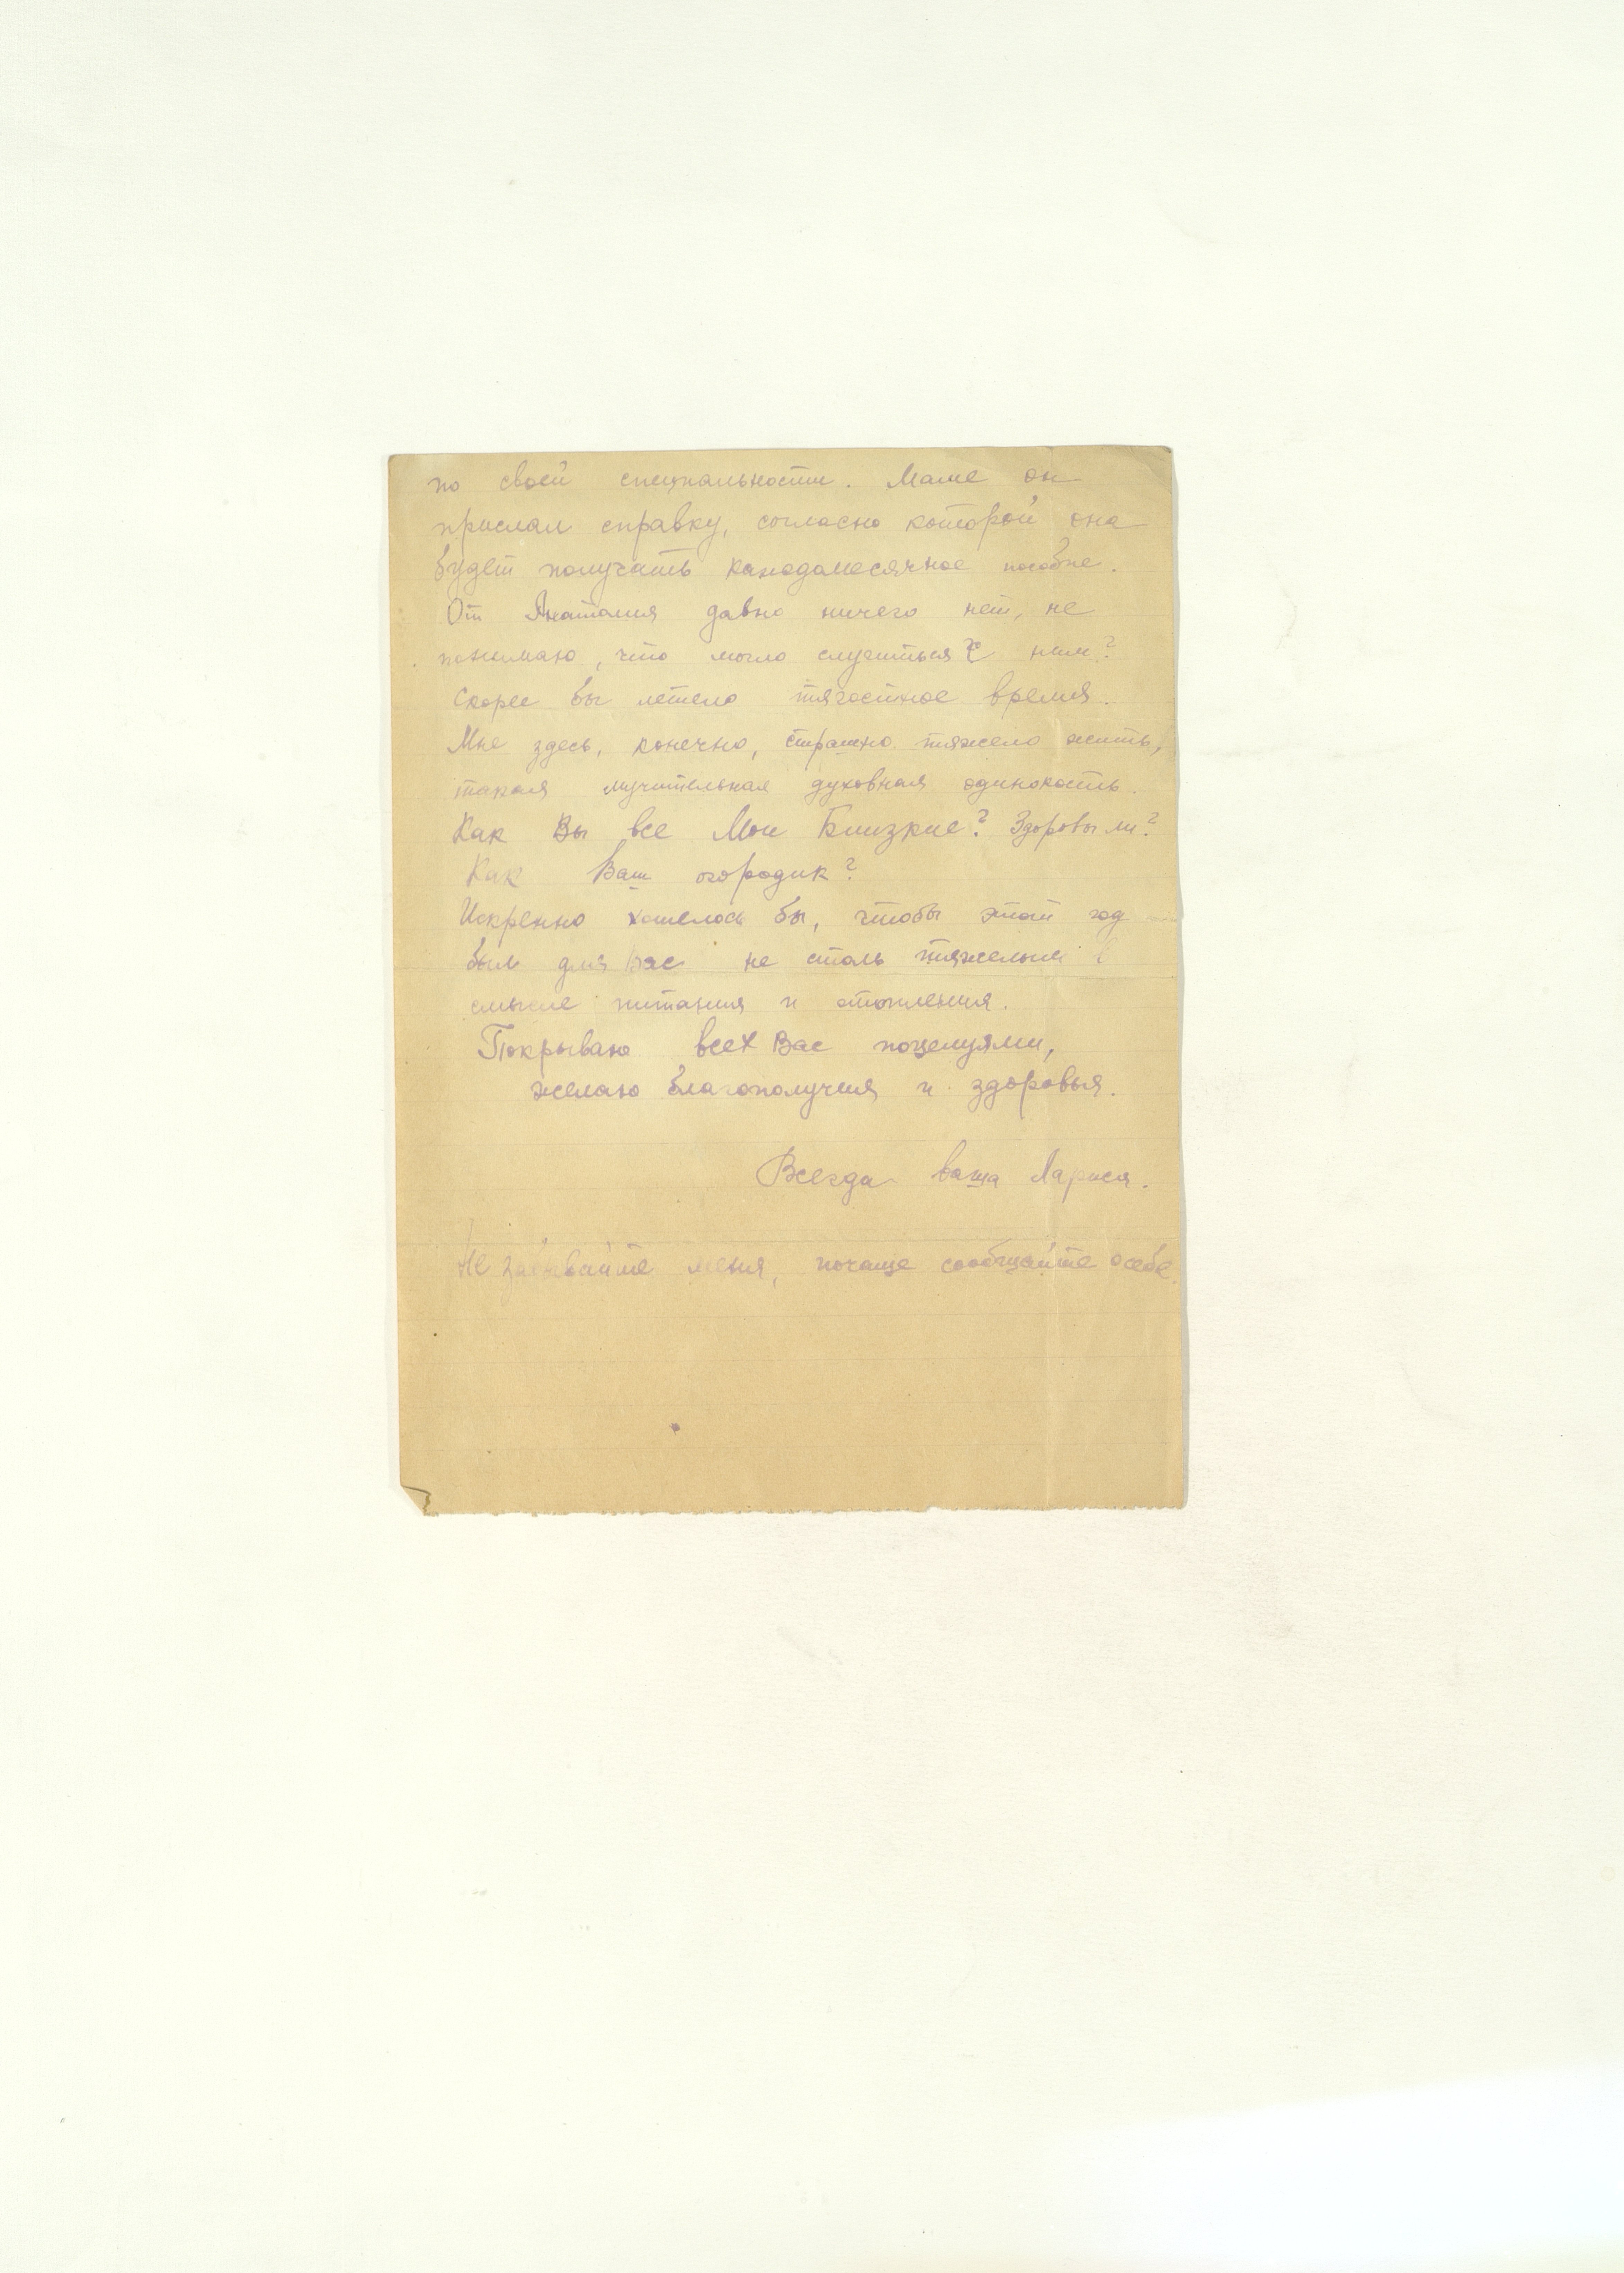 по своей специальности. Маме он
прислал справку, согласно которой она
будет получать каждомесячное пособие.
От Анатолия давно ничего нет, не
понимаю, что могло случиться с ним?
Скорее бы летело тягостное время.
Мне здесь, конечно, страшно тяжело жить,
такая мучительная духовная одинокость.
Как Вы все Мои Близкие? Здоровы ли?
Как Ваш огородик?
Искренно хотелось бы, чтобы этот год
был для вас не столь тяжелым в
смысле питания и отопления.
Покрываю всех Вас поцелуями,
желаю благополучия и здоровья.
Всегда ваша Лариса.
Не забывайте меня, почаще сообщайте о себе.